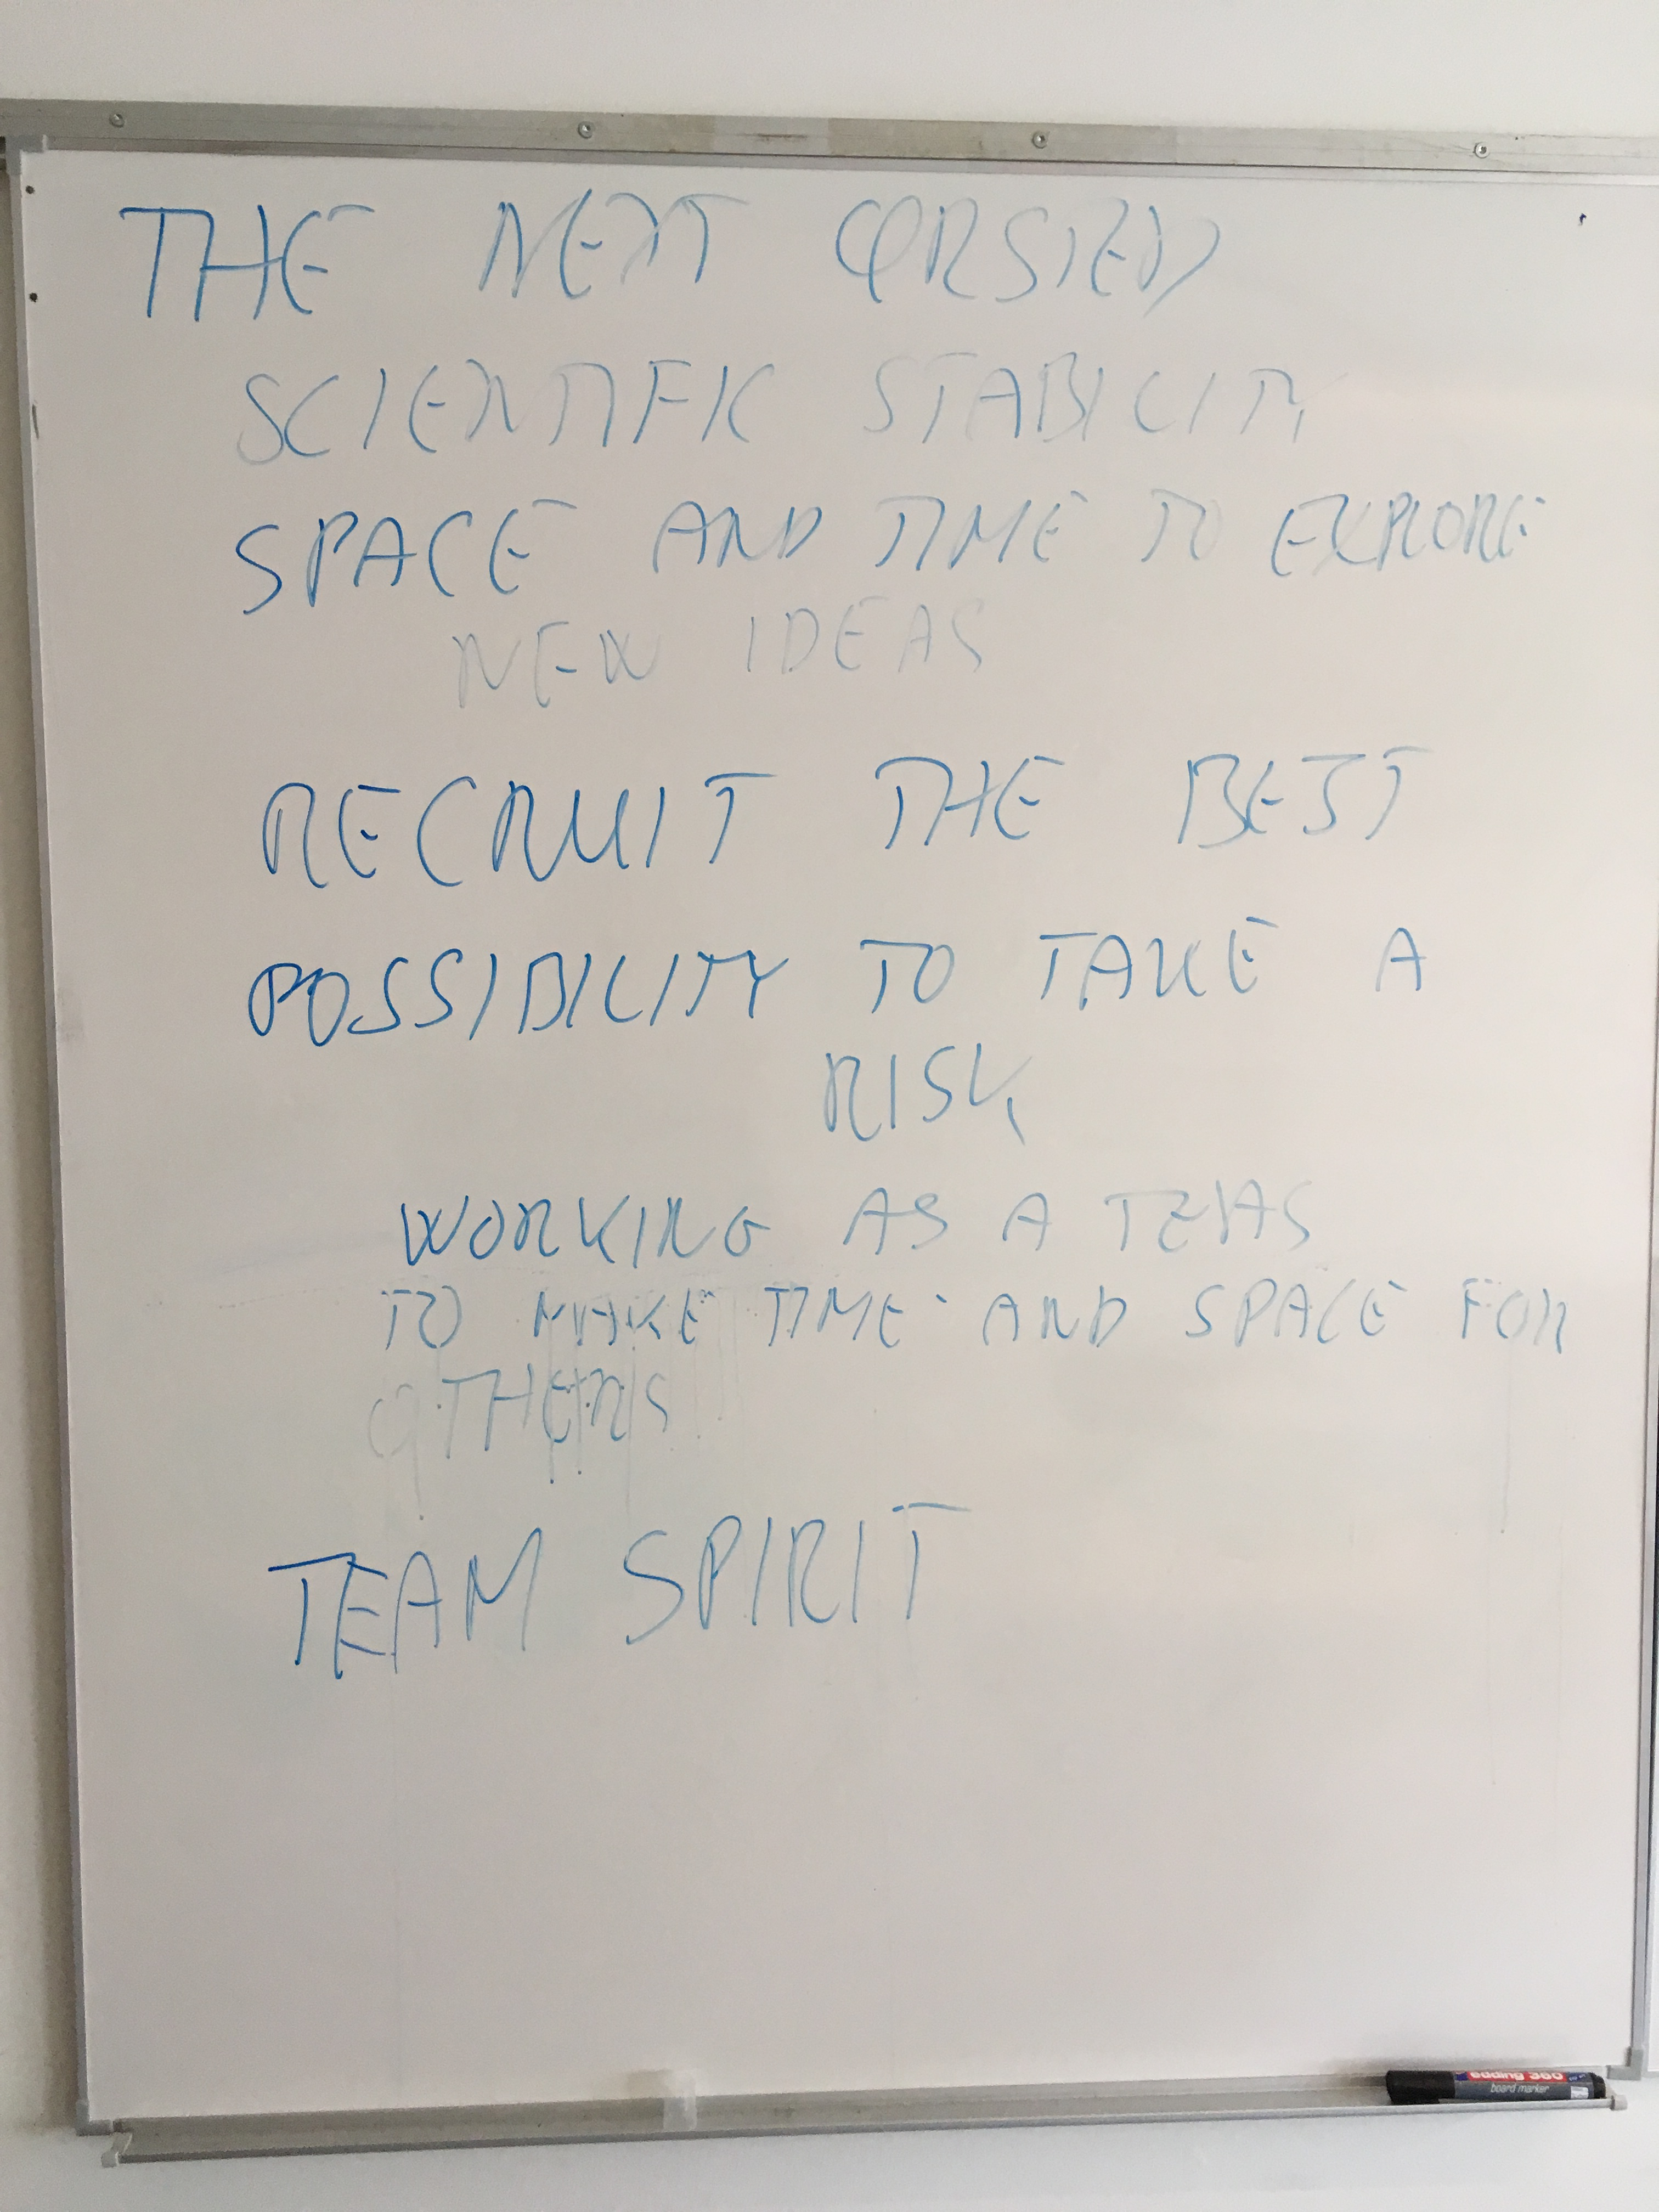 THE NEXT ØRSTED
SCIENTIFIC STABILITY
SPACE AND TIME TO EXPLORE
NEW IDEAS
RECRUIT THE BEST
POSSIBILITY TO TAKE A
RISK
WORKING AS A
TO MAKE TIME AND SPACE FOR
OTHERS
TEAM SPIRIT
edding 360
board marker